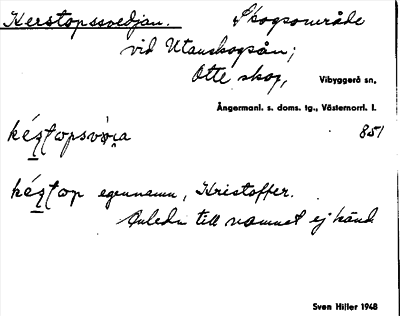 Kerstopssvedjan. Skogsområde
vid Utanskogsån;
Otte skog,
Vibyggerå sn,
Ångermanl. s. doms. tg., Västernorrl. l.
851
egennamn, Kristoffer.
Anledn till namnet ej känd
Sven Hiller 1948